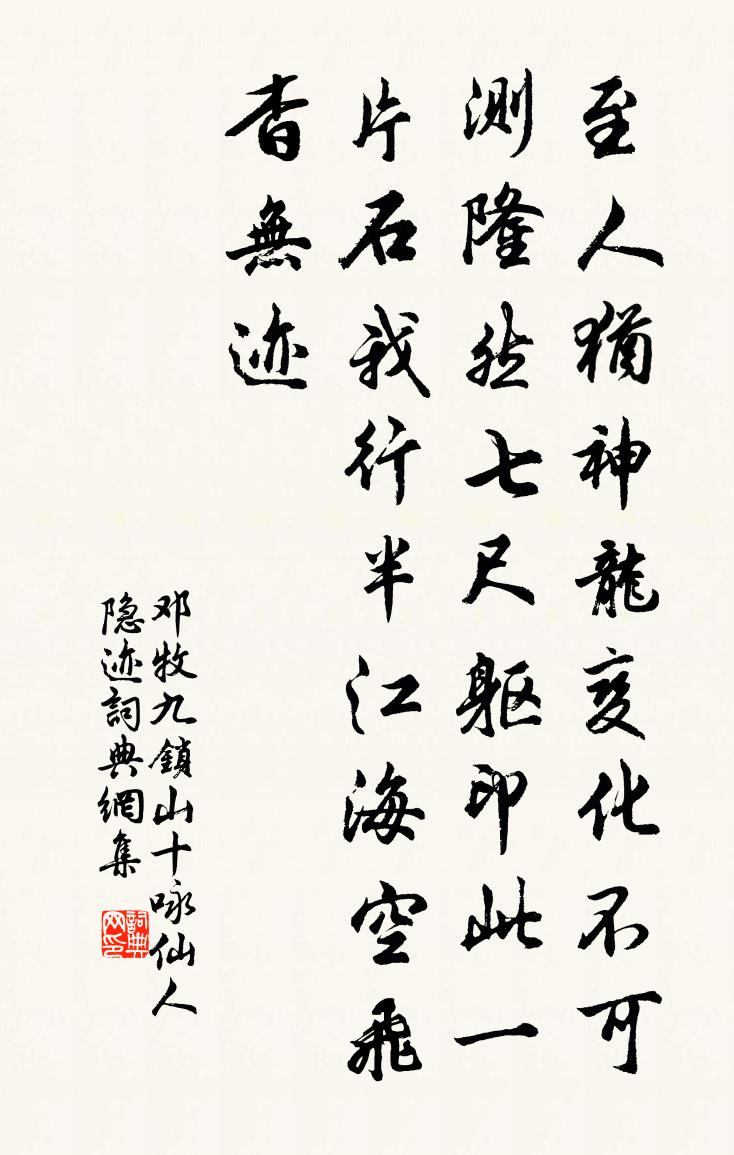 至人猶神龍变化不可
測隆然七尺躯印此一
片石我行半江海空飛
杳無迹
邓牧九鎖山十咏仙人
隐迹詞典網集
詞典网印